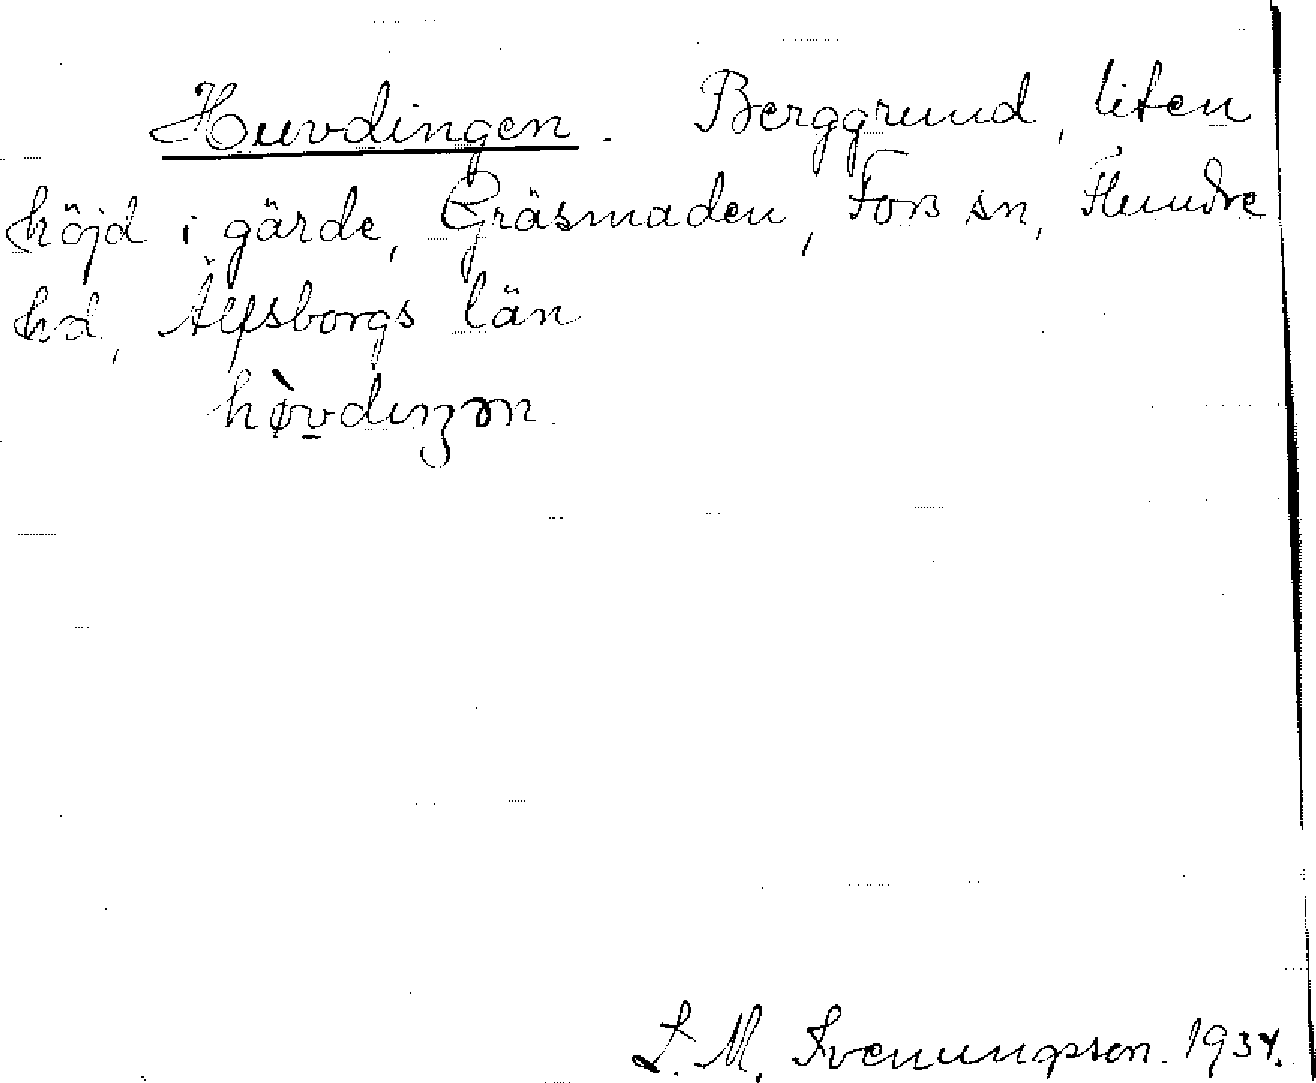 Huvdingen. Berggrund, liten
höjd i gärde, Gräsmaden, Fors sn, Flundre
hd, Älfsborgs län
hø̀vdiŋən
L. M. Svenungsson. 1934.